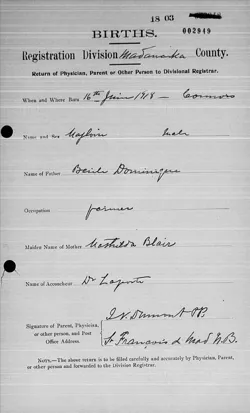 18 03
002949
BIRTHS.
Registration Division Madawaska County.
Return of Physician, Parent or Other Person to Divisional Registrar.
When and Where Born 16th June 1918 – Connors
Name and Sex Male
Name of Father Dominique
Occupation farmer
Maiden Name of Mother Mathilda Blair
Name of Accoucheur Dr
Signature of Parent, Physician,
or other person, and Post
Office Address.
Dumont
St. Francois Mad N.B.
NOTE.—The above return is to be filled carefully and accurately by Physician, Parent,
or other person and forwarded to the Division Registrar.